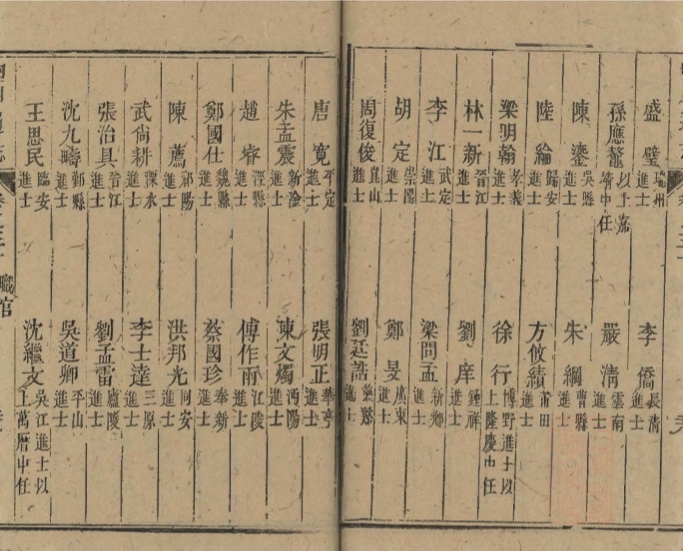 盛璧 瑞州進士 李僑 長清進士
孫應鰲 以上嘉靖中任 嚴清 雲南進士
陳鎏 吳縣進士 朱綱 曹縣進士
陸綸 歸安進士 方攸績 莆田進士
梁明翰 孝義進士 徐行 博野進士以上隆慶中任
林一新 晉江進士 劉庠 鍾祥進士
李江 武定進士 梁問孟 新鄉進士
胡定 崇陽進士 鄭旻 廣東進士
周復俊 崑山進士 劉廷誥 進士
唐寬 平定進士 張明正 華亭進士
朱孟震 新淦進士 陳文燭 沔陽進士
趙睿 涇縣進士 傅作雨 江陵進士
鄭國仕 魏縣進士 蔡國珍 奉新進士
陳薦 祁陽進士 洪邦光 同安進士
武尚耕 溧水進士 李士達 三原進士
張治具 晉江進士 劉孟雷 廬陵進士
沈九疇 鄞縣進士 吳道卿 平山進士
王思民 臨安進士 沈繼文 吳江進士以上萬曆中任
職官